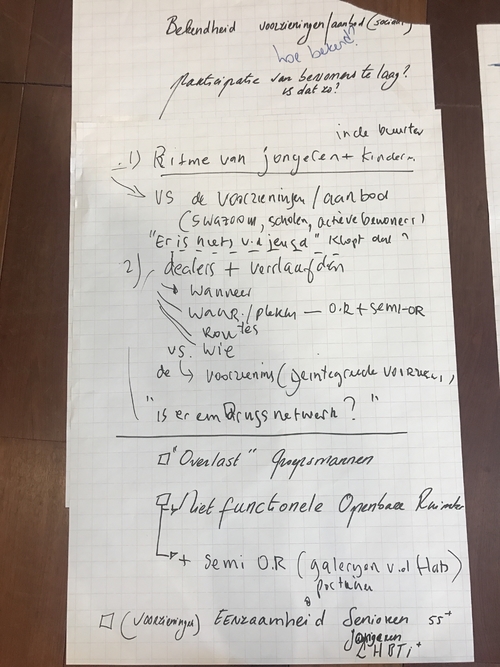 Bekendheid voorzieningen/aanbod (sociaal)
hoe bekend?
participatie van bewoners te laag?
is dat zo?
in de buurten
1) Ritme van jongeren + kinderen
VS de voorzieningen/aanbod
(SWAZOOM, scholen, actieve bewoners)
"Er is niets v.d jeugd" klopt dat?
2) dealers + verslaafden
Wanneer
Waar/plekken — O.R + semi-OR
Routes
vs. Wie
de voorziening (Geïntegreerde voorzien.)
"is er een Drugsnetwerk?"
"Overlast" Groepsmannen
Niet functionele Openbare Ruimte
+ Semi O.R (galeryen v.d flats)
portieken
(voorzieningen) EENzaamheid Senioren 55+
jongeren
LHBTi+